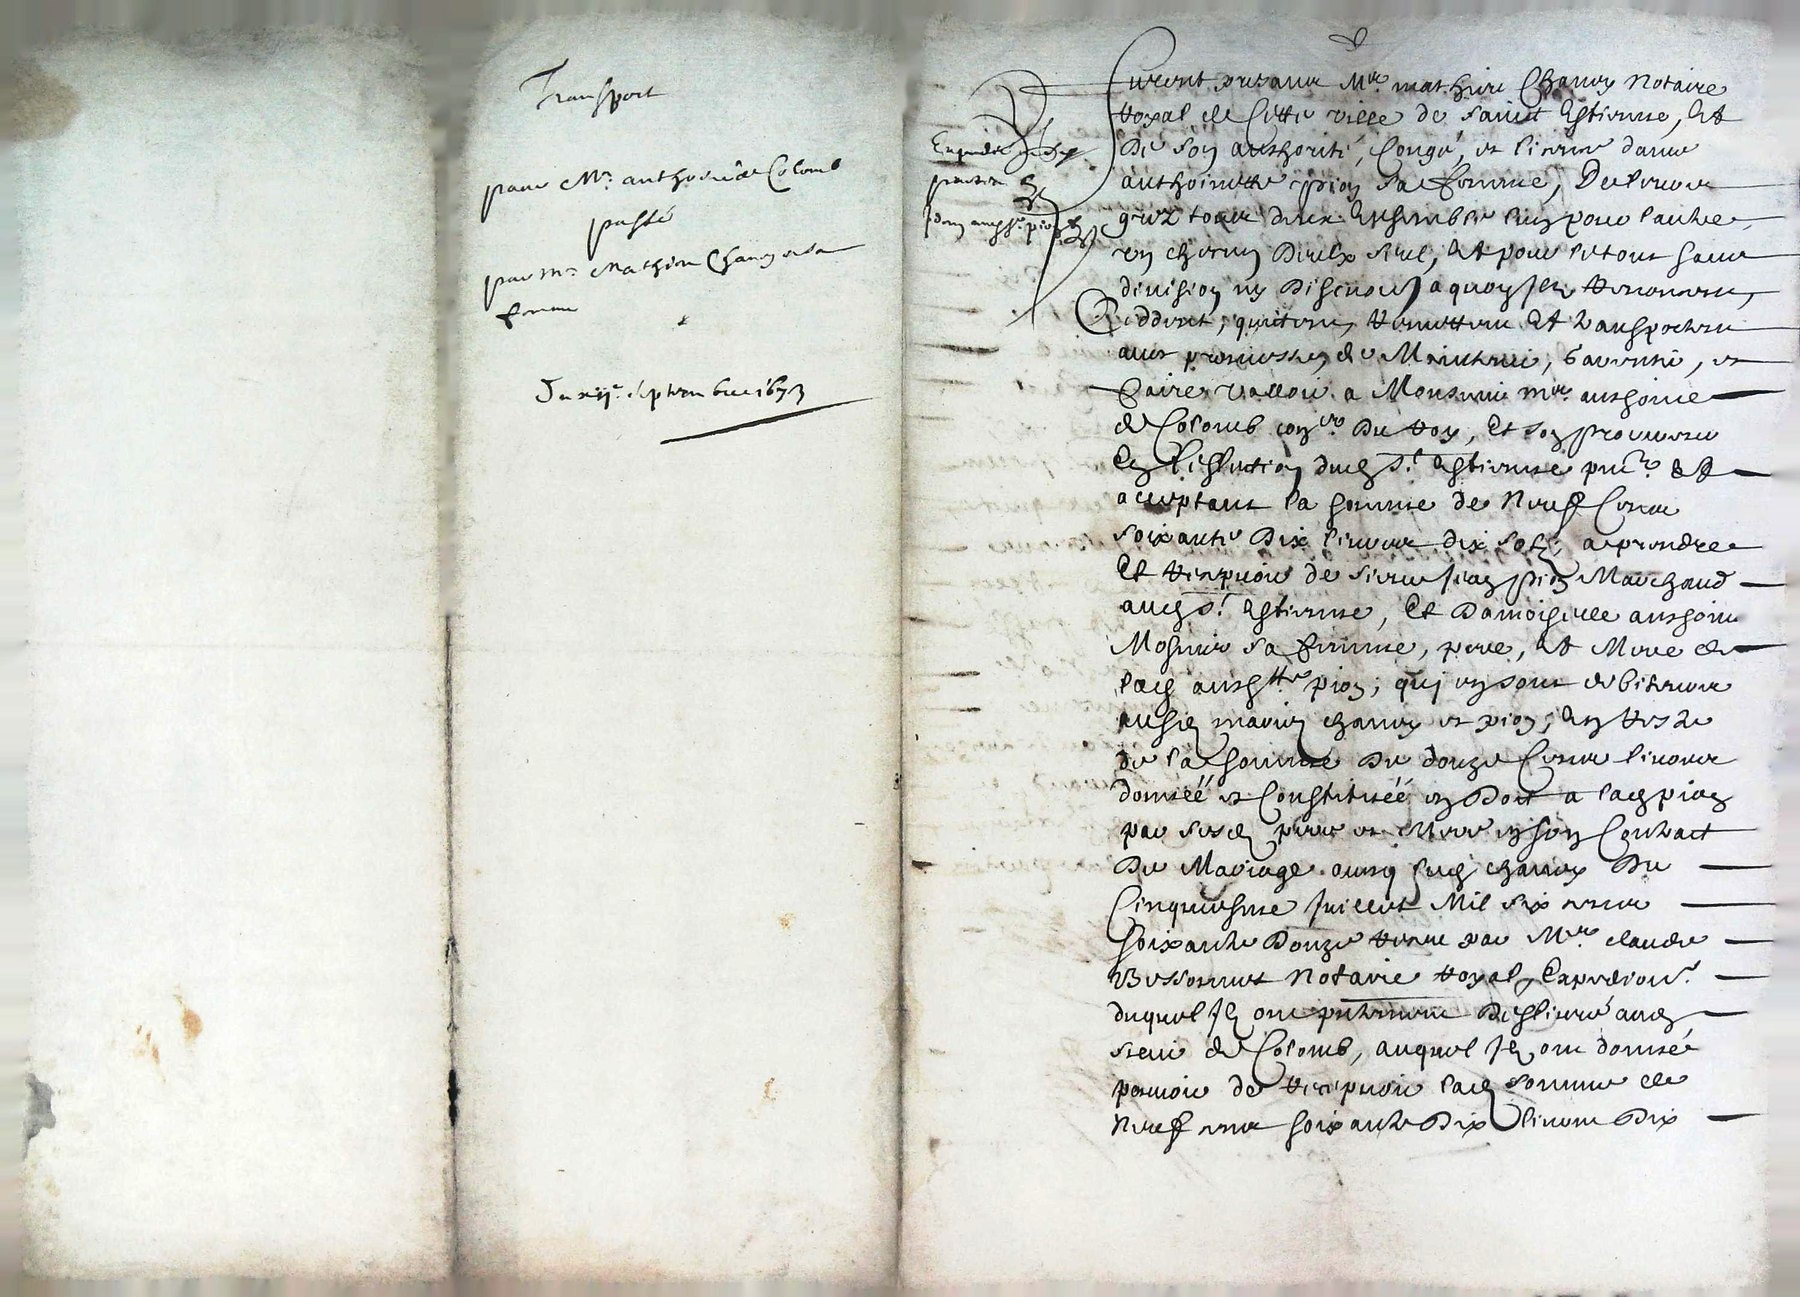 Transport
pour Mr. anthoine de Colomb
passé
par Mr Mathieu Chanoy et sa
femme
Du xije. septembre 1673
Expédié
Furent presans Mre. mathieu Chanoy Notaire
Royal de Cette ville de Sainct Estienne, Et
De son authorité, Congé, et licence dame
anthoinette pion sa femme, Lesquels
gréz tous deux Ensemble l'un pour l'autre,
un chacun D'eulx seul, Et pour le tout sans
division ny Discution, a quoy Ilz Renoncent,
Ceddent, quittent, Remettent Et transportent
avec promesses de Maintenir, Garentir, et
faire valloir a Monsieur mre. anthoine
de Colomb coner. Du Roy, Et son procureur
En l'eslection dud St. Estienne pnt. Et
acceptant la somme de Neuf Cens
soixante Dix livres dix solz, a prendre
Et Recepvoir de sieur Jean pion Marchand
aud St. Estienne, Et Damoiselle anthoine
Mosnier sa femme, pere, Et Mere de
lad anthtte. pion; qui en sont debiteurs
ausd mariez chanoy et pion, En Reste
de la somme De douze Cens livres
donnéé et Constituéé en Dot a lad pion
par sesd pere et Mere en son Contract
De Mariage avecq led chanoy Du
Cinquiesme Juillet Mil six cens
soixante Douze Receu par Mre. claude
Bessonnet Notaire Royal, Expedition
duquel Ilz ont presentement Deslivré aud
sieur de Colomb, auquel Ilz ont donné
pouvoir de Recepvoir lad somme de
Neuf cens soixante Dix livres Dix